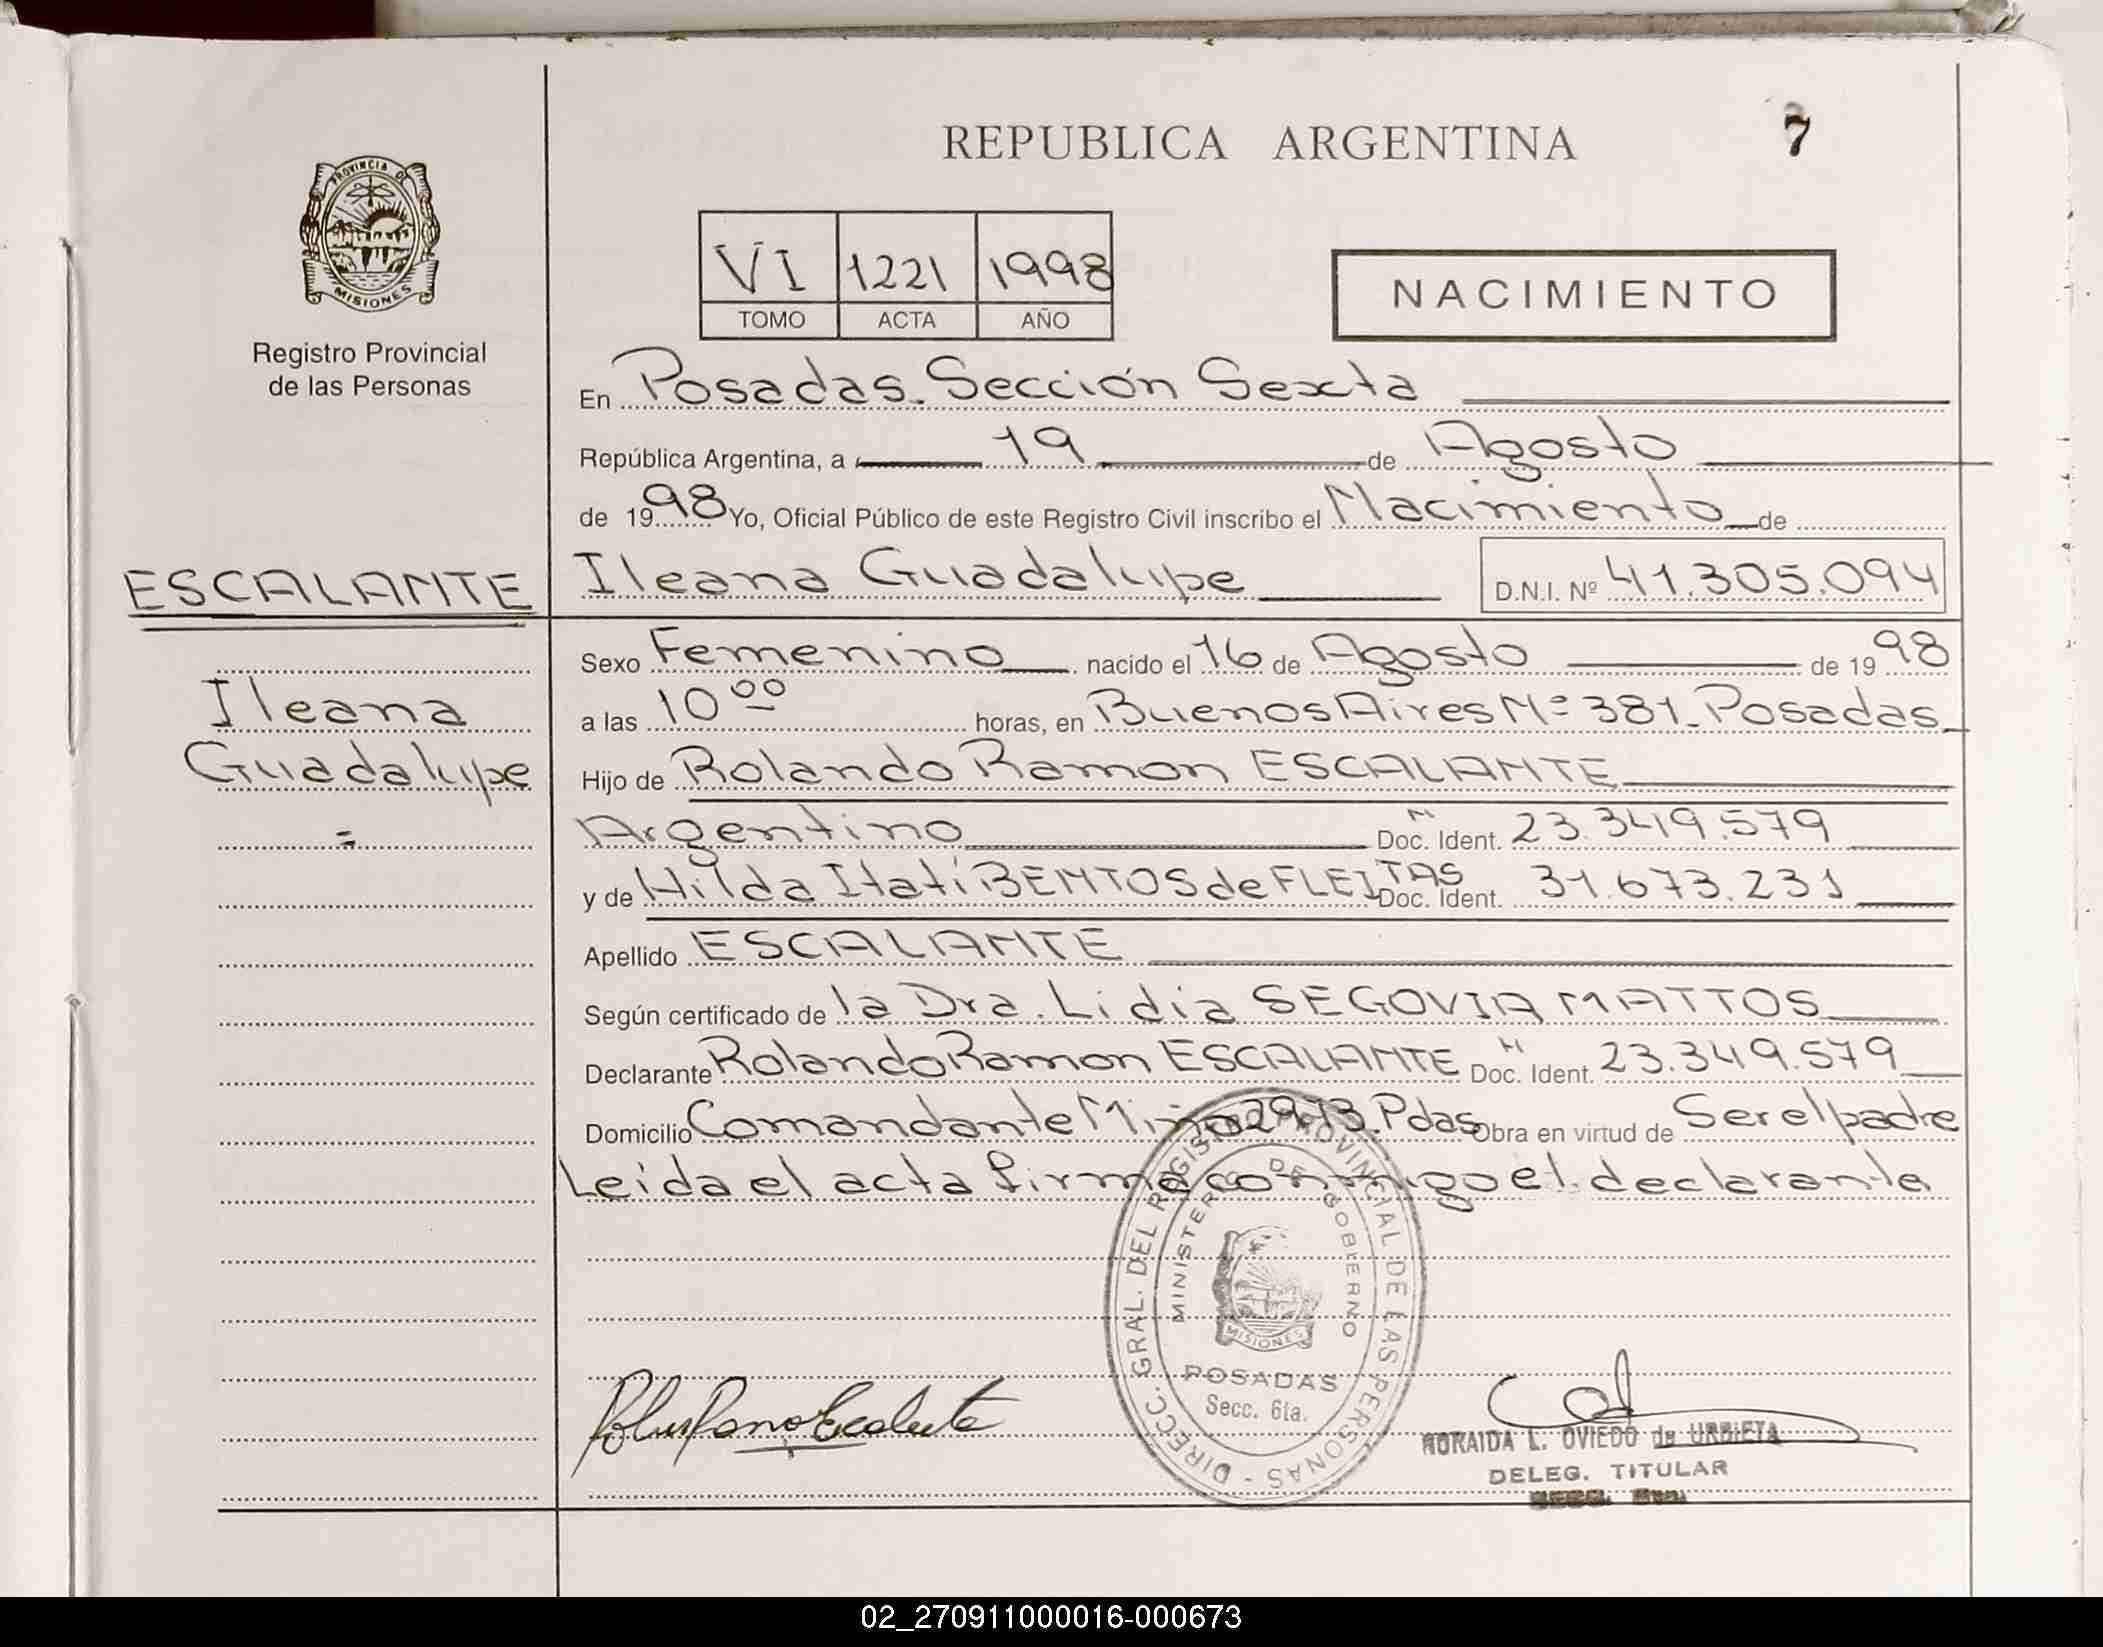 REPUBLICA ARGENTINA
7
PROVINCIA DE
MISIONES
Registro Provincial
de las Personas
VI 1221 1998
TOMO ACTA AÑO
NACIMIENTO
En Posadas. Sección Sexta
República Argentina, a 19 de Agosto
de 1998 Yo, Oficial Público de este Registro Civil inscribo el Nacimiento de
ESCALANTE
Ileana Guadalupe D.N.I. Nº 41.305.094
Sexo Femenino nacido el 16 de Agosto de 1998
Ileana
Guadalupe
a las 10 00 horas, en Buenos Aires Nº 381. Posadas
Hijo de Rolando Ramon ESCALANTE
Argentino Doc. Ident. 23.349.579
y de Hilda Itatí BENTOS de FLEITAS Doc. Ident. 31.673.231
Apellido ESCALANTE
Según certificado de la Dra. Lidia SEGOVIA MATTOS
Declarante Rolando Ramon ESCALANTE Doc. Ident. 23.349.579
Domicilio Comandante Miño 2973. Pdas Obra en virtud de Ser el padre
Leída el acta firma conmigo el declarante
DIRECC. GRAL. DEL REGISTRO PROVINCIAL DE LAS PERSONAS -
MINISTERIO DE GOBIERNO
MISIONES
POSADAS
Secc. 6ta.
L. OVIEDO de URBIETA
DELEG. TITULAR
02_270911000016-000673